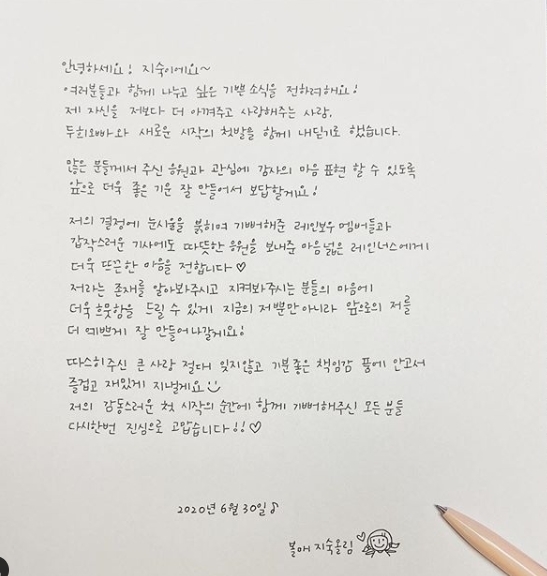 안녕하세요! 지숙이에요~
여러분들과 함께 나누고 싶은 기쁜 소식을 전하려해요!
제 자신을 저보다 더 아껴주고 사랑해주는 사람,
두희오빠와 새로운 시작의 첫발을 함께 내딛기로 했습니다.
많은 분들께서 주신 응원과 관심에 감사의 마음 표현 할 수 있도록
앞으로 더욱 좋은 기운 잘 만들어서 보답할게요!
저의 결정에 눈시울을 붉히며 기뻐해준 레인보우 멤버들과
갑작스러운 기사에도 따뜻한 응원을 보내준 마음 넓은 레인너스에게
더욱 뜨끈한 마음을 전합니다♡
저라는 존재를 알아봐주시고 지켜봐주시는 분들의 마음에
더욱 흐뭇함을 드릴 수 있게 지금의 저뿐만 아니라 앞으로의 저를
더 예쁘게 잘 만들어나갈게요!
따스히주신 큰 사랑 절대 잊지않고 기분좋은 책임감 품에 안고서
즐겁고 재밌게 지낼게요
저의 감동스러운 첫 시작의 순간에 함께 기뻐해주신 모든분들
다시한번 진심으로 고맙습니다!!♡
2020년 6월 30일♪
볼매 지숙올림